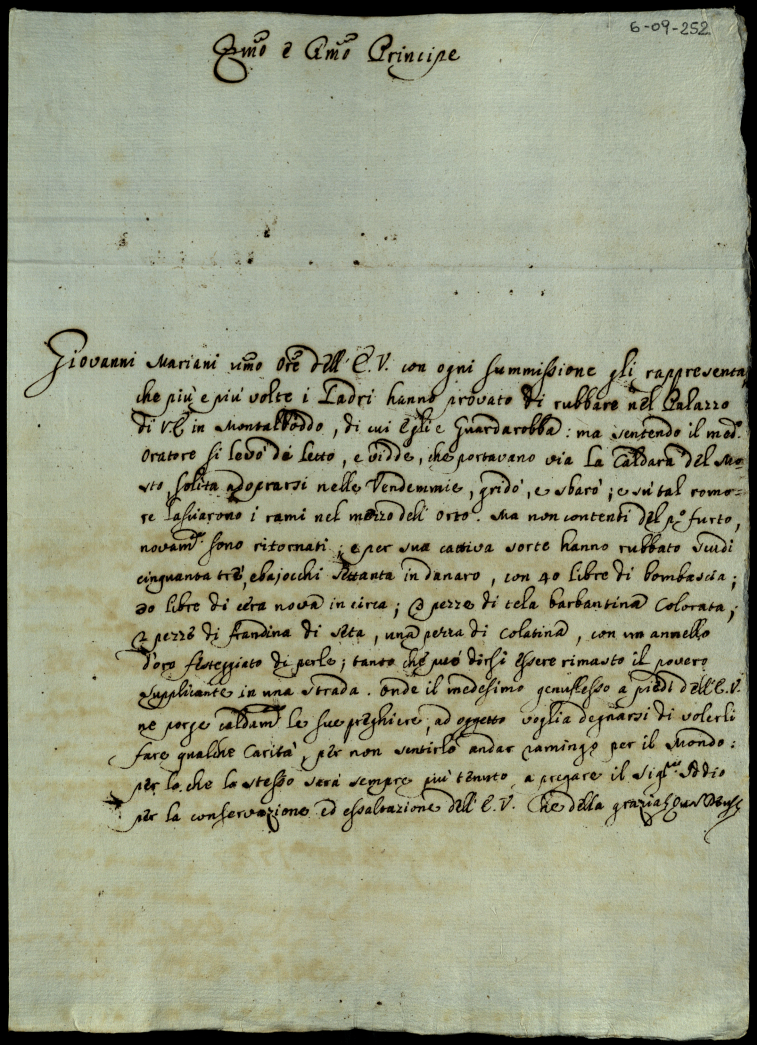 6-09-252
Emo e Rmo Principe
Giovanni Mariani umo Ore dell' E. V. con ogni summissione gli rappresenta,
che più, e più volte i Ladri hanno provato di rubbare nel Palazzo
di VE in Montalboddo, di cui Egli e Guardarobba: ma sentendo il med.o
Oratore si levò da letto, e vidde, che portavano via la Caldara del Mo=
sto, solita adoprarsi nelle Vendemmie, gridò, e sbarò; e sù tal romo=
re lasciarono i rami nel mezzo dell' orto. Ma non contenti del p.o furto,
novam.te sono ritornati; e per sua cattiva sorte hanno rubbato scudi
cinquanta trè, e bajocchi settanta in danaro, con 40 libre di bombascia;
30 libre di cera nova in circa; 2 pezze di tela barbantina Colorata;
2 pezze di frandina di seta, una pezza di Colatina, con un annello
d'oro festeggiato di perle; tanto che può dirsi essere rimasto il povero
supplicante in una strada. Onde il medesimo genuflesso a piedi dell' E. V.
ne porge caldam.te le sue preghiere, ad oggetto voglia degnarsi di volerli
fare qualche Carità, per non sentirlo andar ramingo per il Mondo:
per lo che lo stesso sarà sempre più tenuto a pregare il Sig.re Iddio
per la conservazione ed essaltazione dell' E. V. Che della grazia Quam Deus